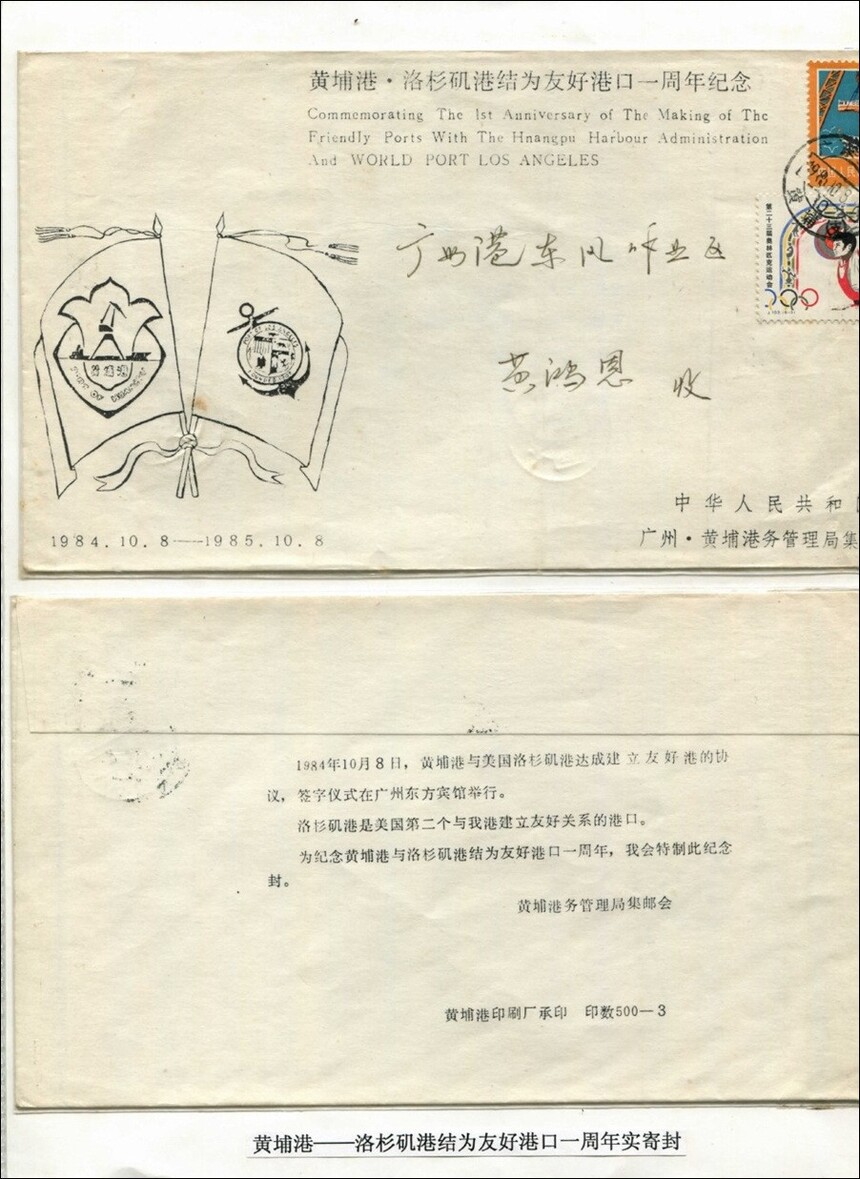 黄埔港·洛杉矶港结为友好港口一周年纪念
Commemorating The 1st Anniversary of The Making of The
Friendly Ports With The Hnangpu Harbour Administration
And WORLD PORT LOS ANGELES
第二十三届奥林匹克运动会
广州港东风作业区
黄埔港
黄鸿恩 收
中华人民共和
1984.10.8——1985.10.8
广州·黄埔港务管理局集
1984年10月8日，黄埔港与美国洛杉矶港达成建立友好港的协
议，签字仪式在广州东方宾馆举行。
洛杉矶港是美国第二个与我港建立友好关系的港口。
为纪念黄埔港与洛杉矶港结为友好港口一周年，我会特制此纪念
封。
黄埔港务管理局集邮会
黄埔港印刷厂承印 印数500—3
黄埔港——洛杉矶港结为友好港口一周年实寄封